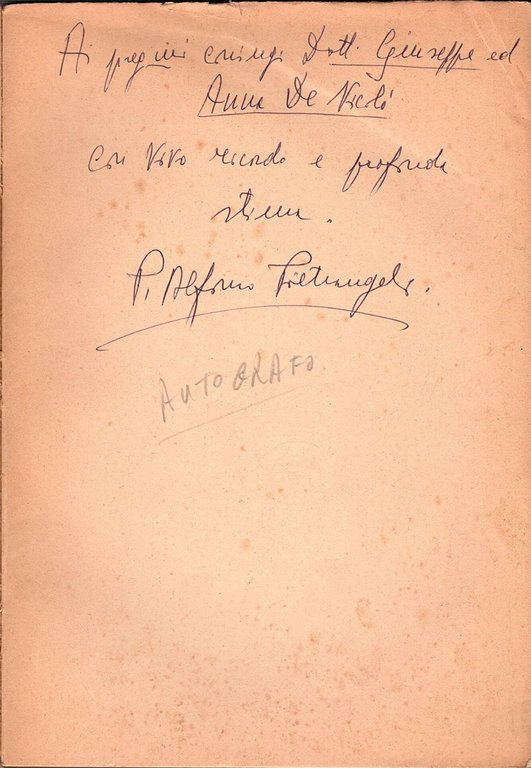 Ai preg.mi coniugi Dott. Giuseppe ed
Anna De Nicolò
con vivo ricordo e profonda
stima.
P. Alfonso Pietrangeli.
AUTOGRAFO